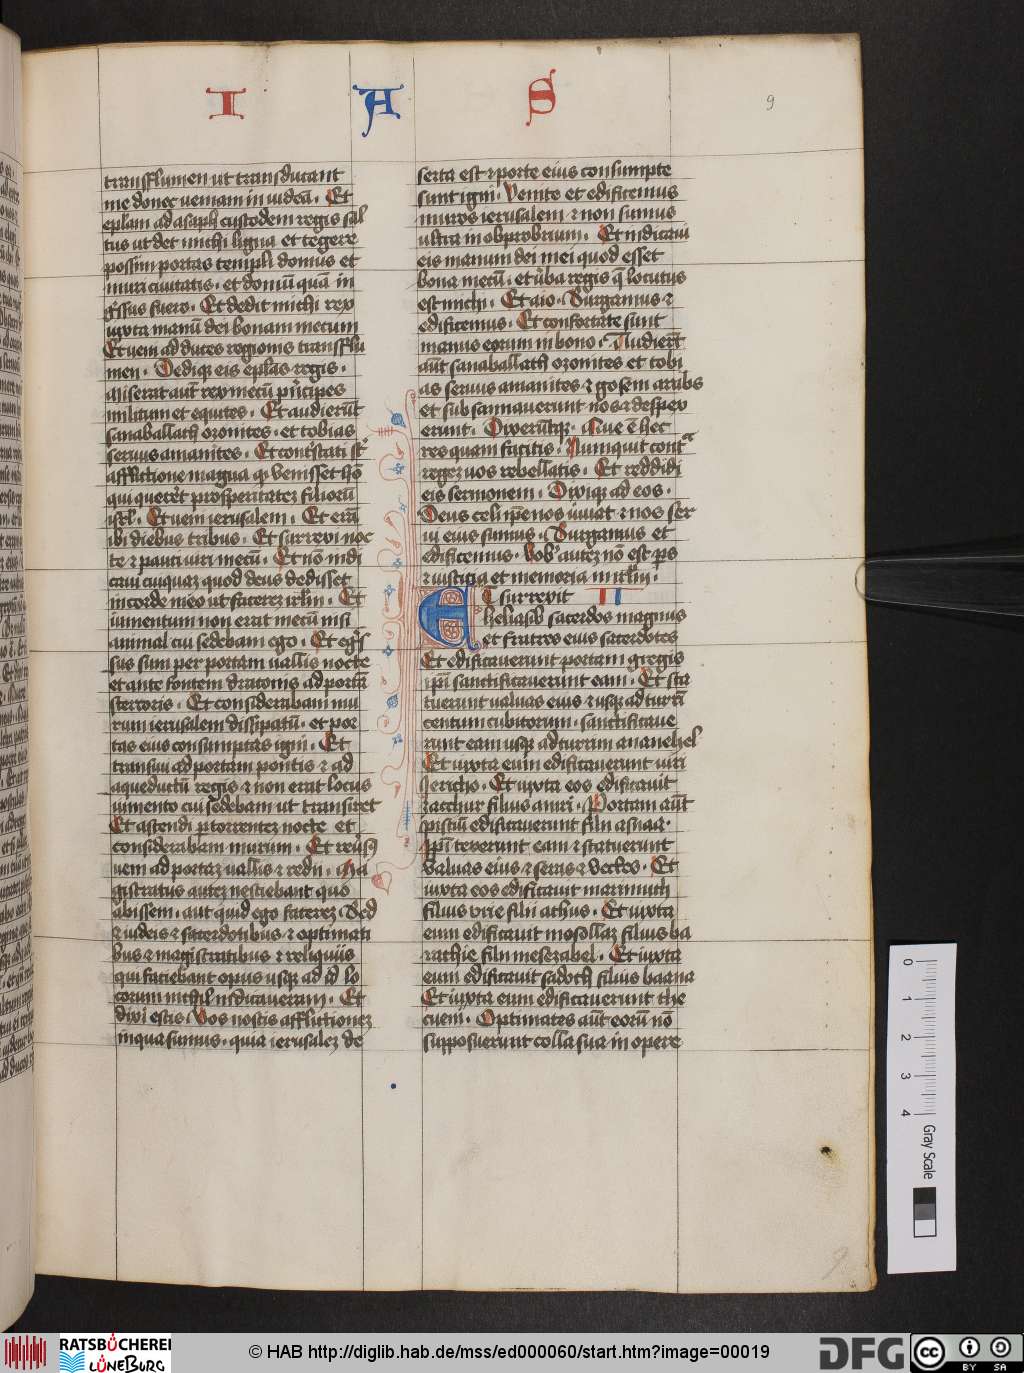 I A S
9
transflumen ut transducant
me donec veniam in iudeā. Et
eplam ad asaph custodem regis sal
tus ut det michi ligna et tegere
possim portas templi domus et
muri ciuitatis. et domū quā in
g̃ssus fuero. Et dedit michi rex
iuxta manū dei bonam mecum
Et veni ad duces regionis transflu
men. Dediq; eis eplas regis.
Miserat aut̄ rex mecū p̃ncipes
militum et equites. Et audierūt
sanaballath oronites. et tobias
seruus amanites. Et cont̃stati st̃
afflictione magna q̓ venisset hō
qui queret̃ prosperitatez filiorū
isrl. Et veni ierusalem. Et erā
ibi diebus tribus. Et surrexi noc
te ⁊ pauci viri mecū. Et nō indi
caui cuiquaz quod deus dedisset
in corde meo ut facerez irlm. Et
iumentum non erat mecū nisi
animal cui sedebam ego. Et eg̃s
sus sum per portam vallis nocte
et ante fontem draconis ad portā
stercoris. Et considerabam mu
rum ierusalem dissipatū. et por
tas eius consumptas igni. Et
transiui ad portam pontis ⁊ ad
aqueductū regis ⁊ non erat locus
iumento cui sedebam ut transiret
Et ascendi p torrentez nocte et
considerabam murum. Et reũs9
veni ad portaz vallis ⁊ redii. Ma
gistratus autez nesciebant quo
abissem. aut quid ego facerez. Sed
⁊ iudeis ⁊ sacerdotibus ⁊ optimati
bus ⁊ magistratibus ⁊ reliquiis
qui faciebant opus usq; ad id lo
corum nichil indicaueram. Et
dixi eis. Vos nostis afflictionez
in qua sumus. quia ierusalez de
serta est ⁊ porte eius consumpte
sunt igni. Venite et edificemus
muros ierusalem ⁊ non sumus
ultra in obprobrium. Et indicaui
eis manum dei mei quod esset
bona mecū. et ũba regis q̄ locutus
est michi. Et aio. Surgamus ⁊
edificemus. Et confortate sunt
manus eorum in bono. Audierūt
aūt sanaballath oronites et tobi
as seruus amanites ⁊ gosem arabs
et subsannauerunt nos ⁊ despex
erunt. Dixerūtq;. Que ē hec
res quam facitis. Numquit contᵃ
regez vos rebellatis. Et reddidi
eis sermonem. Dixiq; ad eos.
Deus celi ip̄e nos iuuat ⁊ nos ser
ui eius sumus. Surgamus et
edificemus. Vob9 autez nō est ꝑs
⁊ iusticia et memoria in irlm.
Et surrexit III
heliasib sacerdos magnus
et fratres eius sacerdotes
Et edificauerunt portam gregis
ip̄i sanctificauerunt eam. Et sta
tuerunt valuas eius ⁊ usq; ad turrī
centum cubitorum. sanctificaue
runt eam usq; ad turrim ananehel
Et iuxta eum edificauerunt viri
iericho. Et iuxta eos edificauit
zacchur filius amri. Portam aūt
pisciū edificauerunt filii asnaa.
Ip̄i texerunt eam ⁊ statuerunt
valuas eius ⁊ seras ⁊ vectes. Et
iuxta eos edificauit marimuth
filius vrie filii achus. Et iuxta
eum edificauit mosollaz filius ba
rachie filii mesezabel. Et iuxta
eum edificauit sadoch filius baana
Et iuxta eum edificauerunt the
cueni. Optimates aūt eorū nō
supposuerunt colla sua in opere
0 1 2 3 4
Gray Scale
RATSBÜCHEREI
LÜNEBURG
© HAB http://diglib.hab.de/mss/ed000060/start.htm?image=00019
DFG
cc BY SA